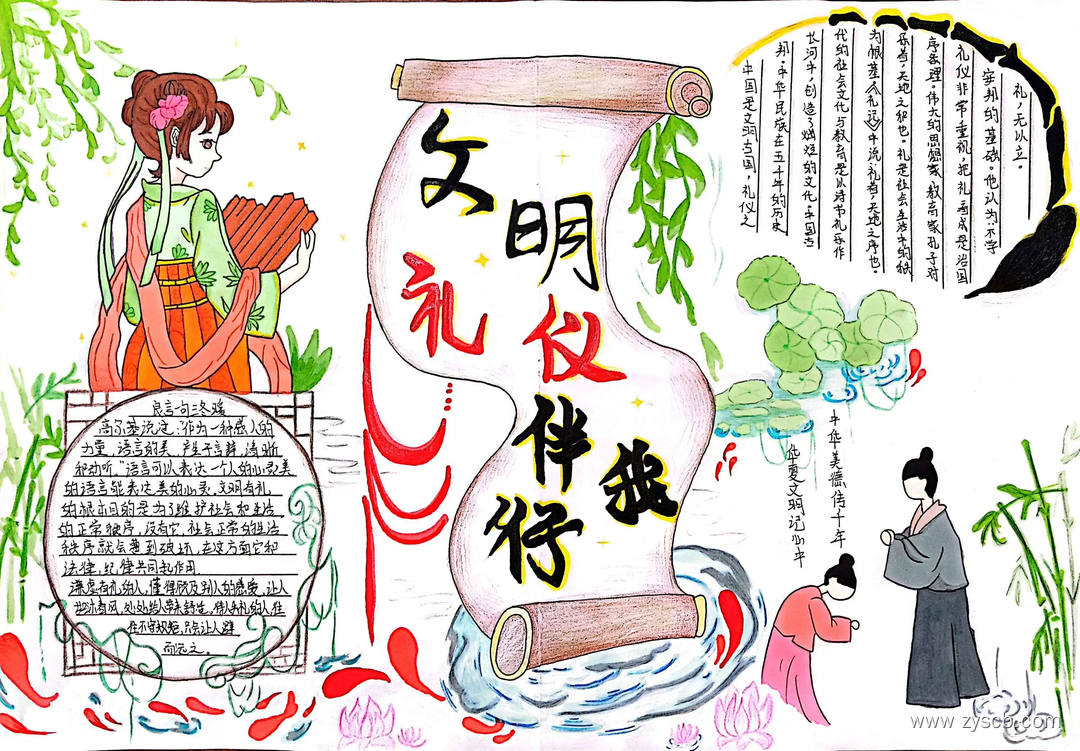 文明
礼仪
伴我行
中国是文明古国,礼仪之
邦,中华民族在五千年的历史
长河中,创造了灿烂的文化。中国古
代的社会文化与教育是以诗书礼乐作
为根基《礼记》中说:礼者,天地之序也。
乐者,天地之和也。礼是社会生活中的秩
序条理。伟大的思想家教育家孔子对
礼仪非常重视,把礼看成是治国
安邦的基础。他认为:不学
礼,无以立。
良言一句三冬暖
高尔基说过:"作为一种感人的
力量,语言的美,产生于言辞,清晰
和动听。"语言可以表达一个人的心灵,美
的语言能表达美的心灵,文明有礼
的根本目的是为了维护社会和生活
的正常秩序,没有它,社会正常的生活
秩序就会遭到破坏,在这方面它和
法律,纪律共同起作用.
谦虚有礼的人,懂得顾及别人的感受,让人
如沐春风,处处给人带来舒适,待人无礼的人往
往不守规矩,只会让人避
而远之。
中华美德传千年
华夏文明记心中
www.zysc8.com